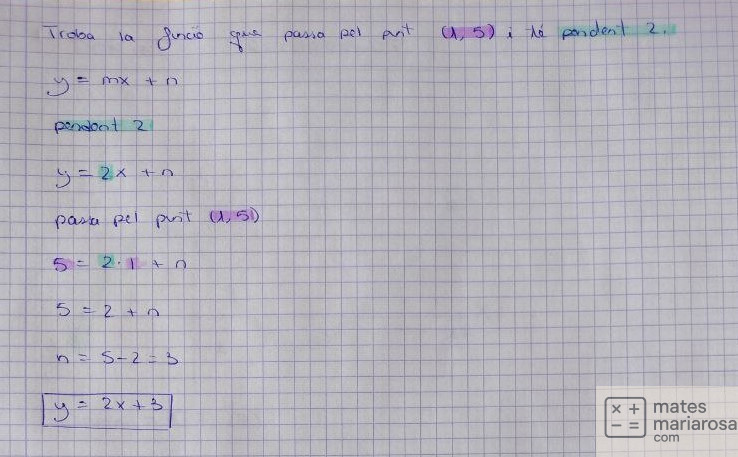 Troba la funció que passa pel punt (1, 5) i té pendent 2.
y = mx + n
pendent 2
y = 2x + n
passa pel punt (1, 5)
5 = 2 · 1 + n
5 = 2 + n
n = 5 - 2 = 3
y = 2x + 3
× + mates
- = mariarosa
com